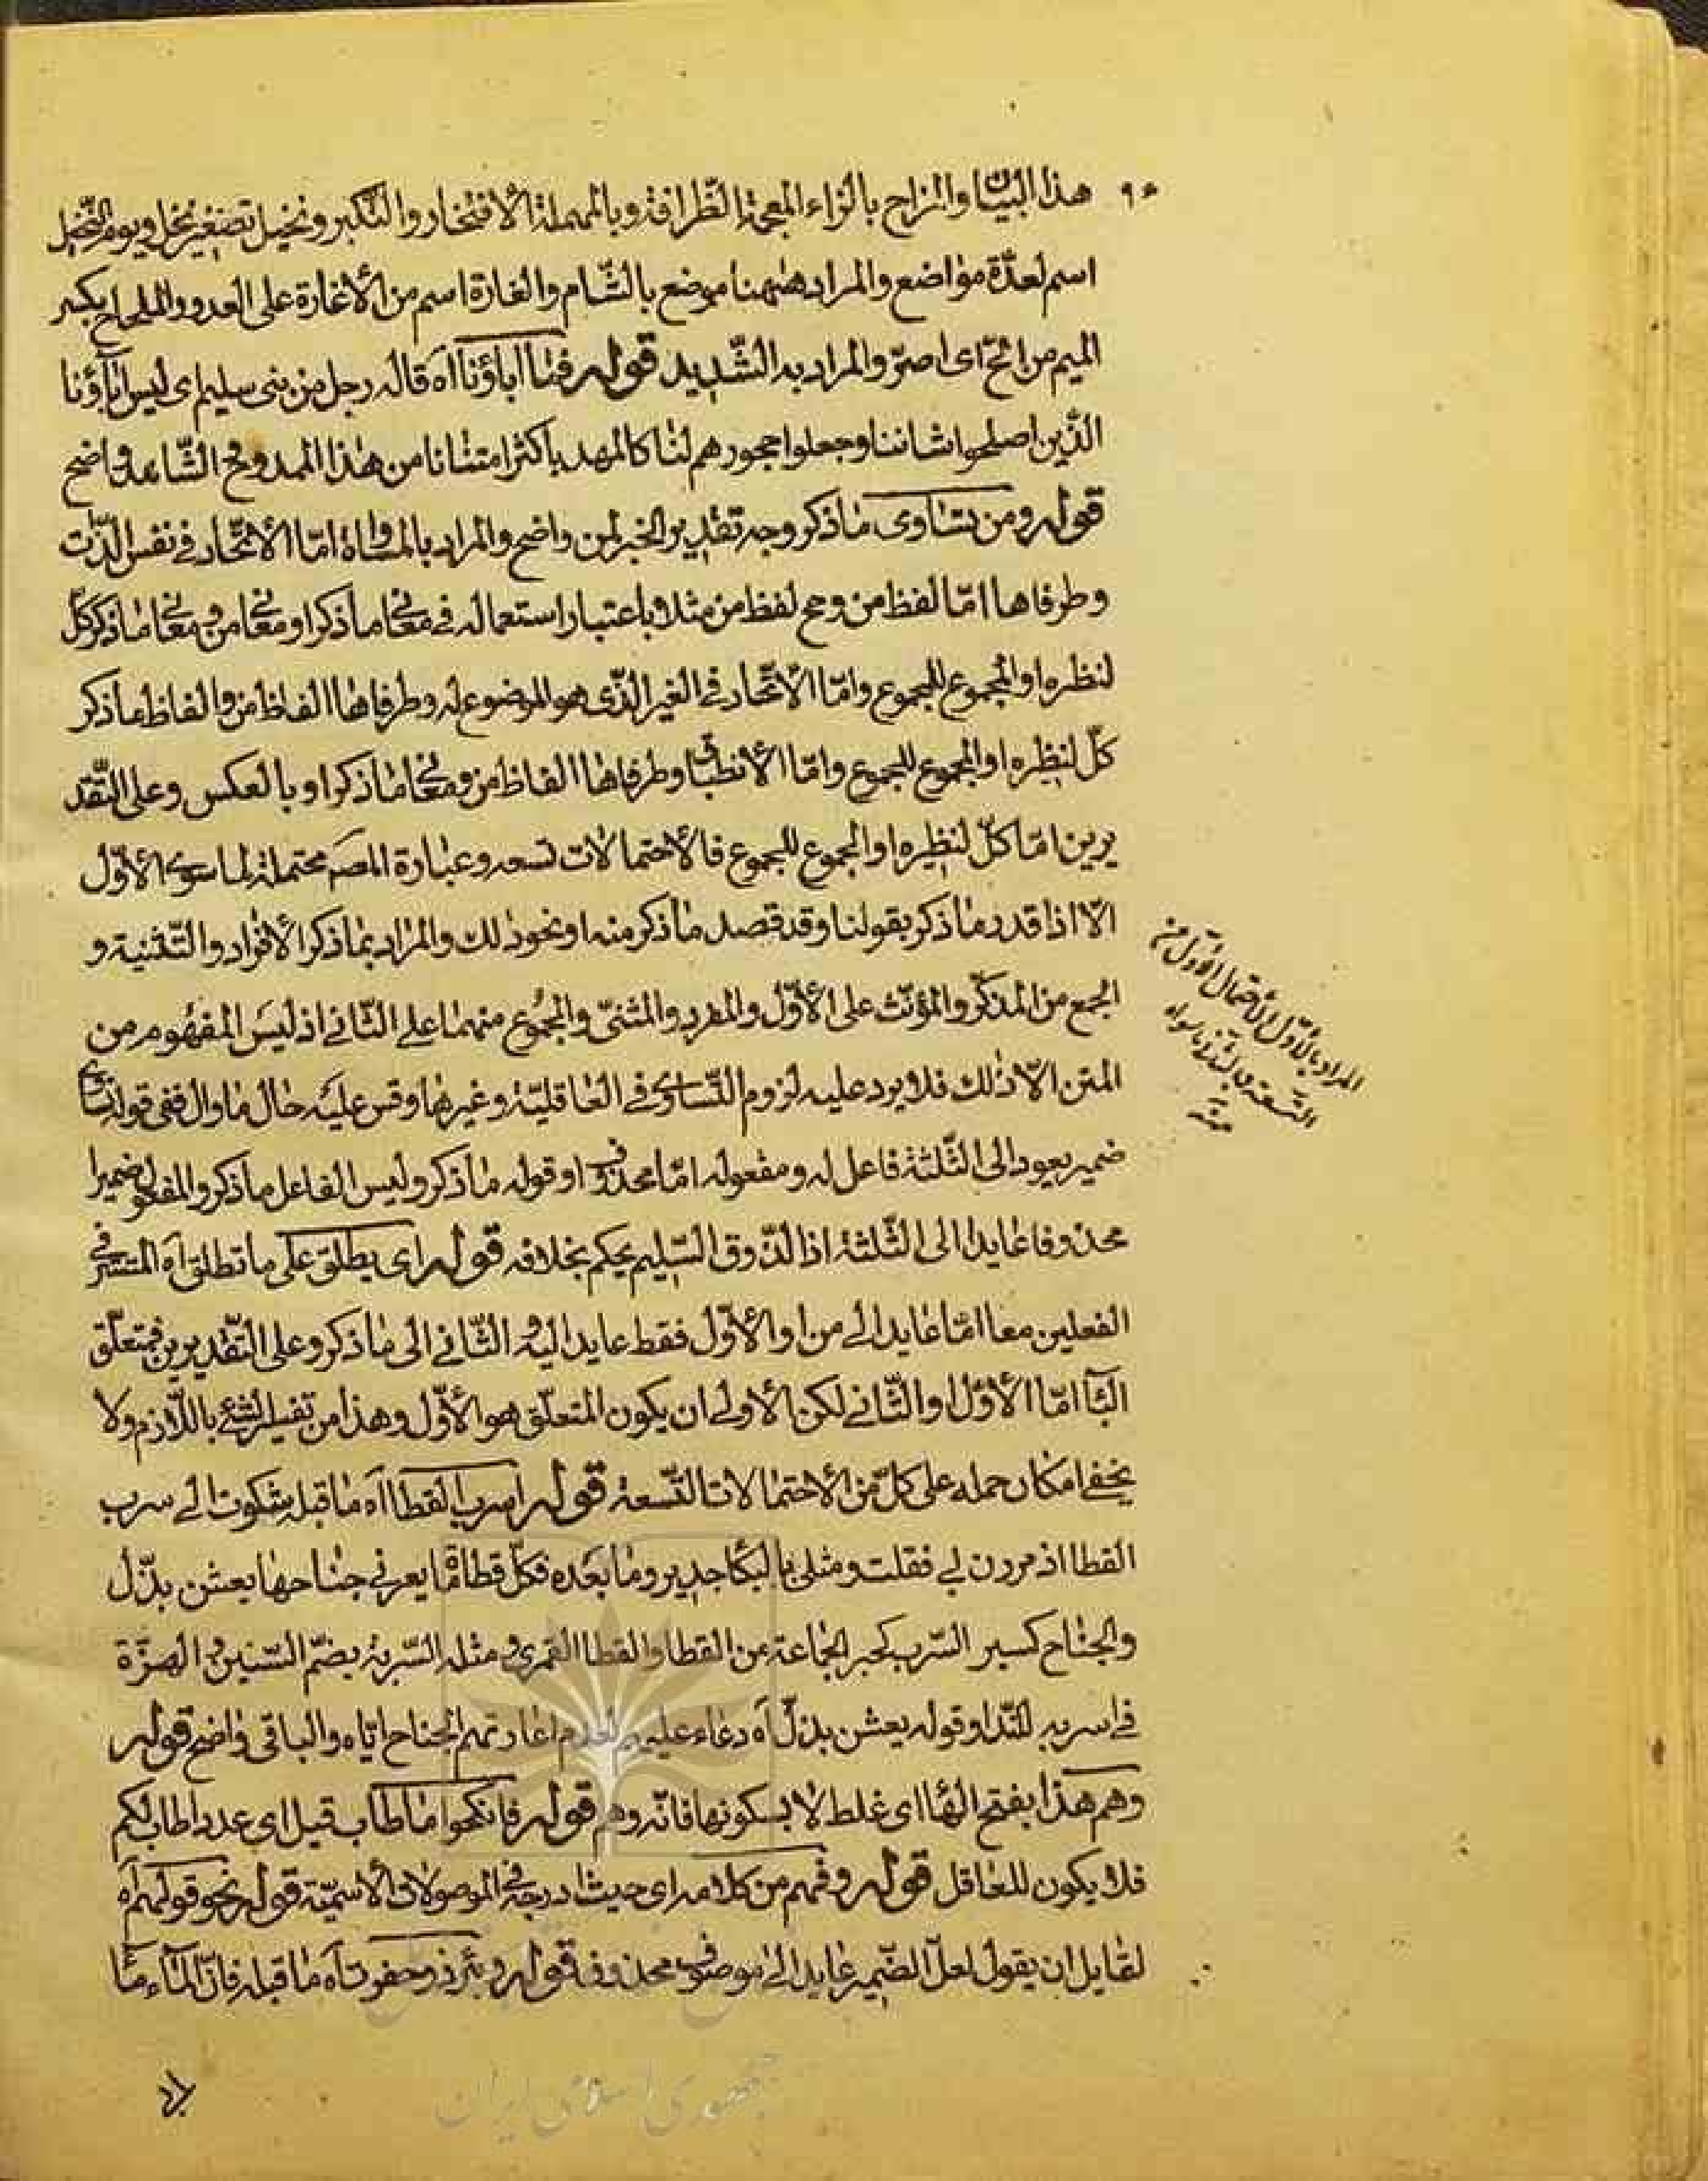 ٩٤ هذا البيتان والمزاح بالزاء المعجمة الظرافة وبالمهملة الافتخار والتكبر ونخيل تصغير نخل ويوم النخيل
اسم لعدة مواضع والمراد ههنا موضع بالشام والغارة اسم من الأغارة على العدو والملحاح بكسر
الميم من الح اى اصر والمراد به الشديد قوله فما اباؤنا اه قاله رجل من بنى سليم اى ليس اباؤنا
الذين اصلحوا شاننا وجعلوا حجورهم لنا كالمهد باكثر امتنانا من هذا الممدوح الشاهد واضح
قوله ومن يتساوى ما ذكر وجه تقدير الخبر لمن واضح والمراد بالمساواة اما الاتحاد فى نفس الذات
وطرفاها اما لفظ من و لفظ من مثلا باعتبار استعماله فى معنى ما ذكر او معنى من و معنى ما ذكر كل
لنظره او المجموع للمجموع واما الاتحاد فى الغير الذى هو الموضوع له وطرفاها الفاظ من والفاظ ما ذكر
كل لنظيره او المجموع للمجموع واما الانطباق وطرفاها الفاظ من ومعنى ما ذكر او بالعكس وعلى التقد
يرين اما كل لنظيره او المجموع للمجموع فالأحتمالات تسعه وعبارة المصـ محتملة لما سوى الأول
الا اذا قدر ما ذكر بقولنا وقد قصد ما ذكر منه او نحو ذلك والمراد بما ذكر الأفراد والتثنية و
الجمع من المذكر والمؤنث على الأول والمفرد والمثنى والمجموع منهما على الثانى اذ ليس المفهوم من
المتن الا ذلك فلا يرد عليه لزوم التساوى فى العاقلية وغيرها وقس عليه حال ما وال ففى قوله تساوى
ضمير يعود الى الثلثة فاعل له ومفعوله اما محذوف او قوله ما ذكر وليس الفاعل ما ذكر والمفعول ضميرا
محذوفا عايدا الى الثلثة اذ الذوق السليم يحكم بخلافه قوله اى يطلق على ما تطلق اه المستتر فى
الفعلين معا اما عايد الى من او الأول فقط عايد اليه و الثانى الى ما ذكر وعلى التقديرين فمتعلق
البا اما الاول والثانى لكن الأولى ان يكون المتعلق هو الأول وهذا من تفسير الشئ باللازم ولا
يخفى امكان حمله على كل من الأحتمالات التسعة قوله اسرب القطا اه ما قبله شكوت الى سرب
القطا اذ مررن بى فقلت ومثلى بالبكا جدير وما بعده فكل قطاة ما يعرنى جناحها يعشن بذل
والجناح كسير السرب كحبر الجماعة من القطا والقطا القمرى و مثله السربة بضم السنين و الهمزة
فى اسربه للندا وقوله يعشن بذل اه دعاء عليهم لعدم اعارتهم الجناح اياه والباقى واضح قوله
وهم هذا بفتح الها اى غلط لا بسكونها فانه وهم قوله فانكحوا ما طاب قيل اى عددا طاب لكم
فلا يكون للعاقل قوله وفهم من كلامه اى حيث ادرجه فى الموصولات الأسمية قوله نحو قولهم اه
لقايل ان يقول لعل الضمير عايد الى موصوف محذوف قوله وبئرى ذو حفرت اه ما قبله فان الماء ما
المراد بالأول الأحتمال الأول من
التسعة
منه
جمهورى اسلامى ايران